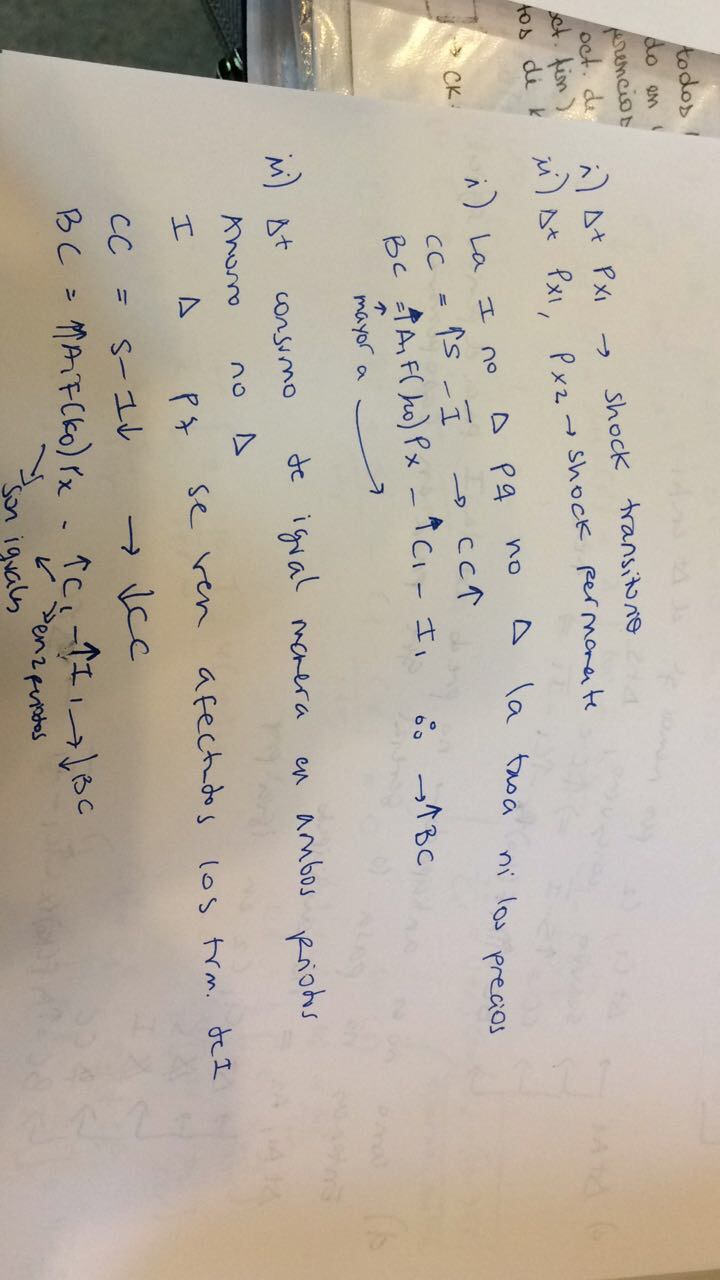 todos
do en
ferencias
oct. de
act. fin)
tos de k
→ CK.
i) Δ+ Px1 → shock transitorio
ii) Δ+ Px1, Px2 → shock permanente
i) La I no Δ pq no Δ la tasa ni los precios
CC = ↑S - I → CC↑
BC = ↑A1F(k0)Px - ↑C1 - I1 ∴ → ↑BC
mayor a
ii) Δ+ consumo de igual manera en ambos priodos
Ahorro no Δ
I Δ pq se ven afectados los trm. de I
CC = S - I↓ → ↓CC
BC = ↑A1F(k0)Px - ↑C1 - ↑I1 → ↓BC
son iguales
en 2 priodos